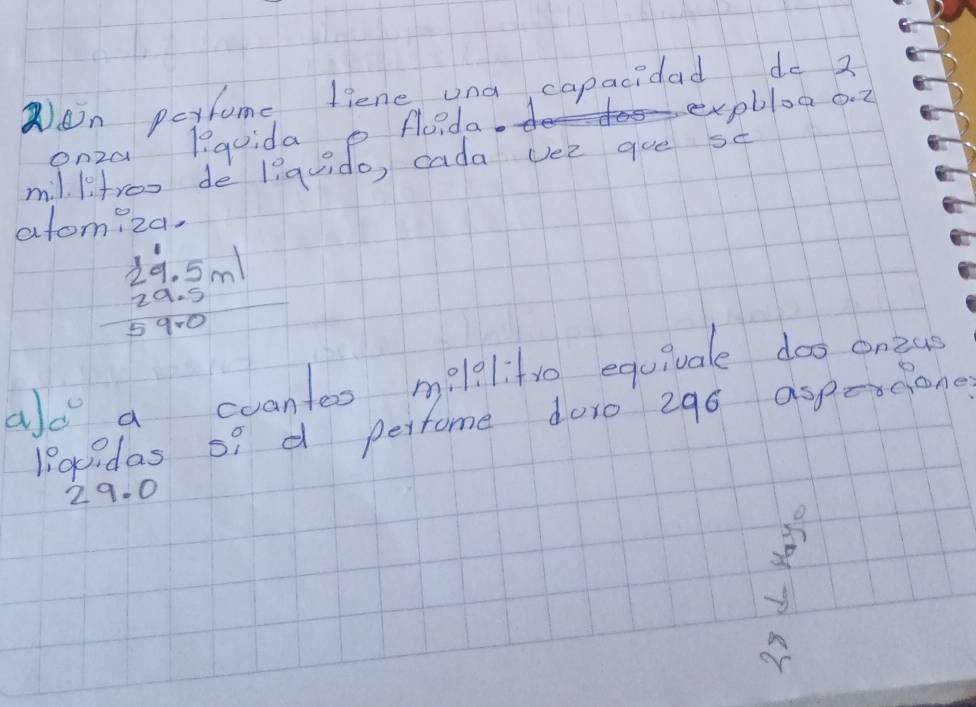 2) Un perfume tiene una capacidad de 2
onza liquida o fluida. de dos expbloa 0.2
mililitros de liquido, cada vez que se
atomiza.
1
29.5 ml
29.5
59.0
a) ¿ a cuantos mililitro equivale dos onzas
liquidas si el perfume duro 296 asperciones
29.0